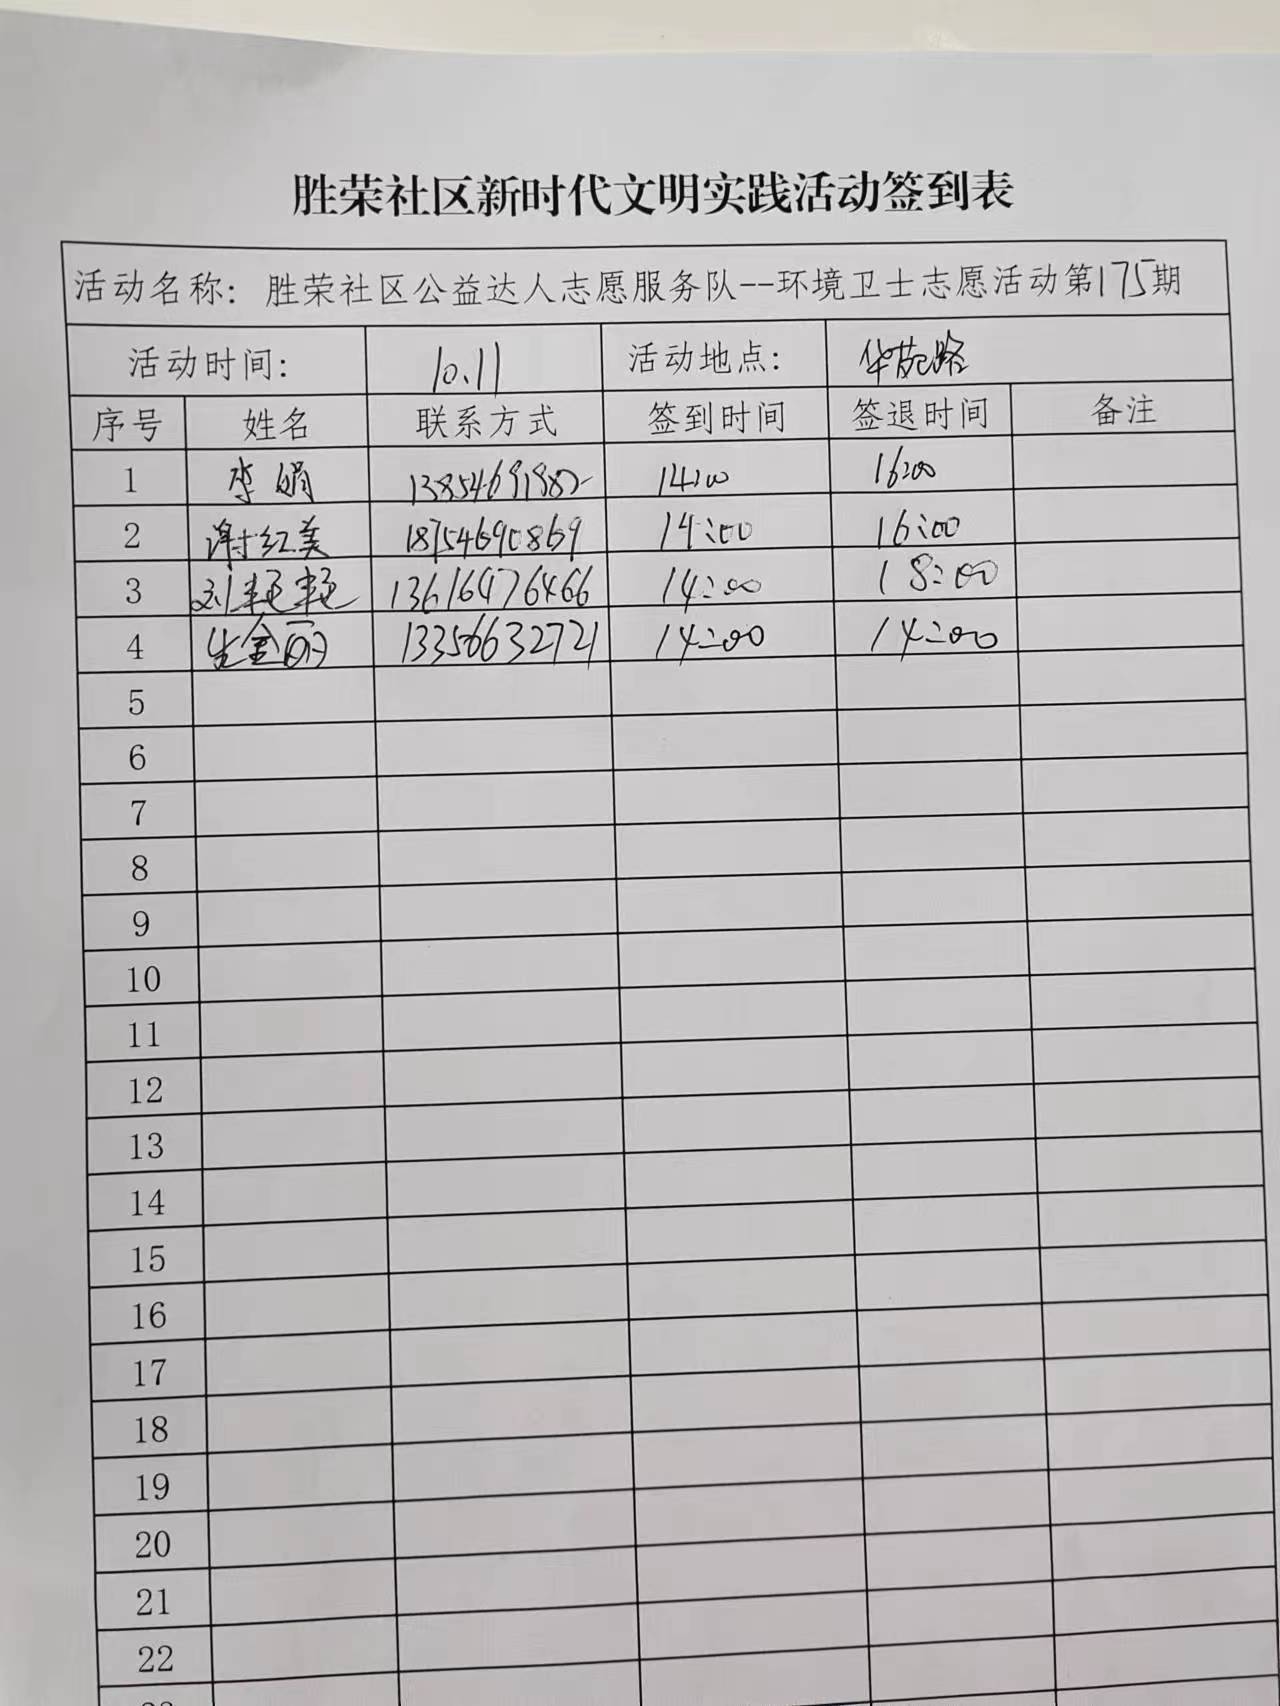 胜荣社区新时代文明实践活动签到表
活动名称：胜荣社区公益达人志愿服务队--环境卫士志愿活动第175期
活动时间： 10.11 活动地点： 华苑路
序号 姓名 联系方式 签到时间 签退时间 备注
1 李娟 14:00 16:00
2 谢红美 18754690869 14:00 16:00
3 刘耗耗 13616476466 14:00 18:00
4 金丽 13356632721 14:00 14:00
5
6
7
8
9
10
11
12
13
14
15
16
17
18
19
20
21
22